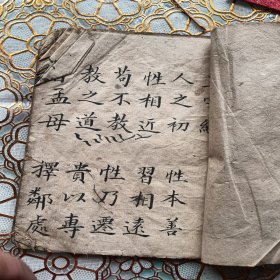 人之初 性本善
性相近 習相遠
苟不教 性乃遷
教之道 貴以專
孟母 擇鄰處